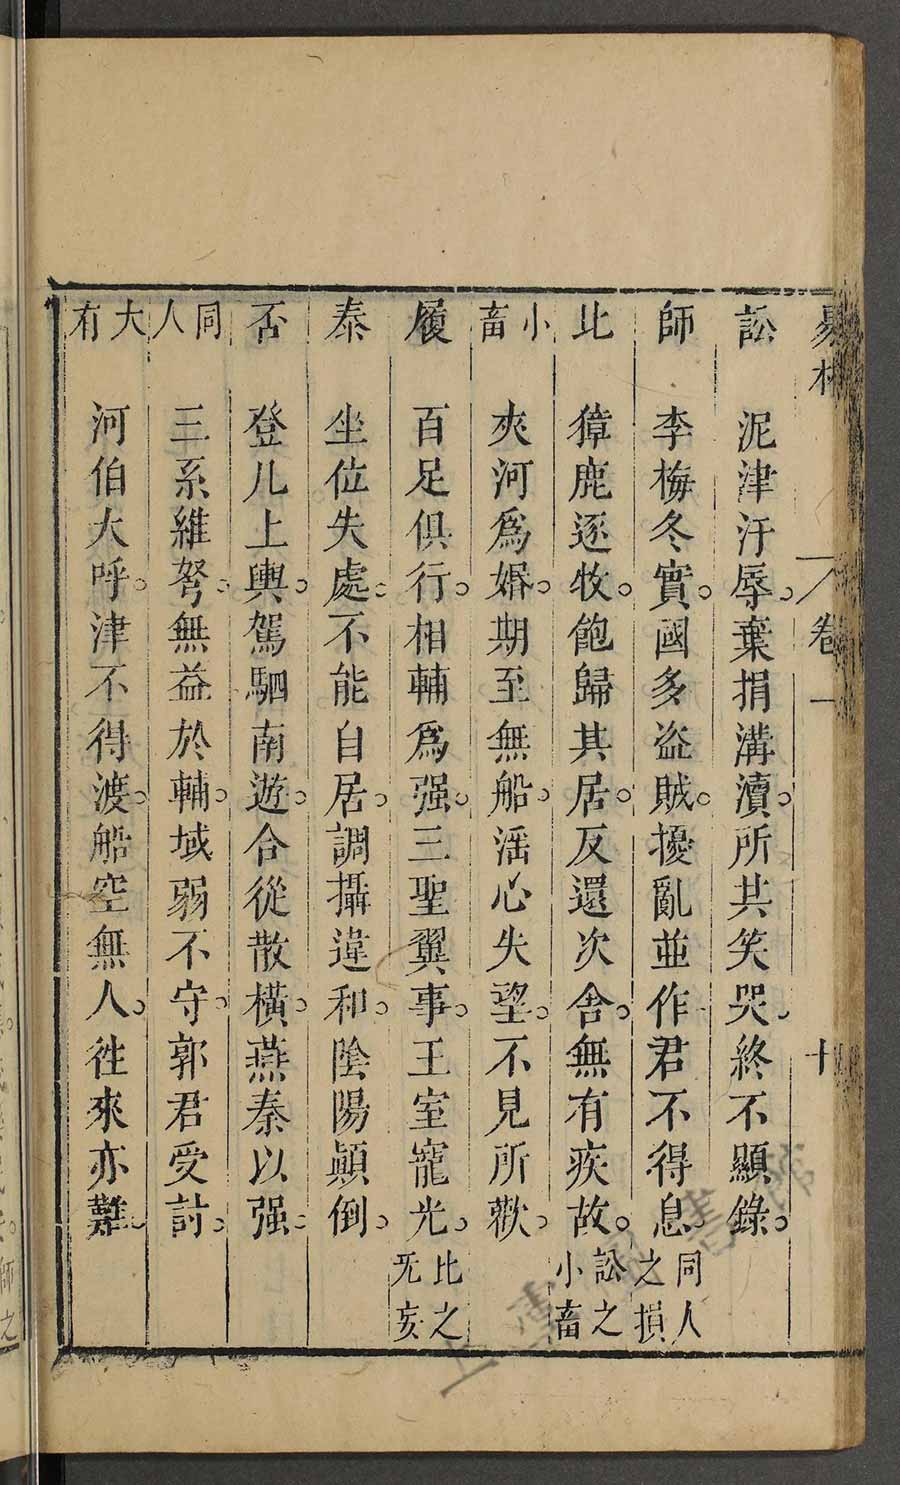 易林 卷一 十
訟 泥津汙辱。棄捐溝瀆。所共笑哭。終不顯錄。
師 李梅冬實。國多盜賊。擾亂並作。君不得息。同人之損
比 獐鹿逐牧。飽歸其居。反還次舍。無有疾故。訟之小畜
小畜 夾河爲婚。期至無船。滛心失望。不見所歡。
履 百足俱行。相輔爲强。三聖翼事。王室寵光。比之旡妄
泰 坐位失處。不能自居。調攝違和。陰陽顚倒。
否 登几上輿。駕駟南遊。合從散橫。燕秦以强。
同人 三系維弩。無益於輔。城弱不守。郭君受討。
大有 河伯大呼。津不得渡。船空無人。徃來亦難。
師之